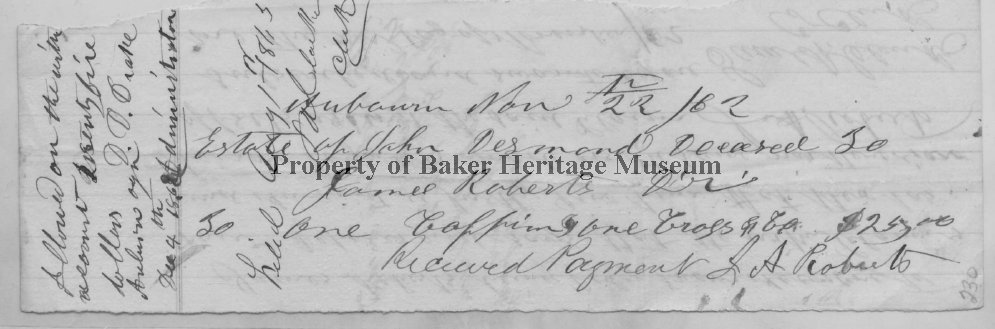 Allowed on the within
account Twentyfive
dollars
Auburn ogn. D. D. Drake
Dec 4th 1862 Administrator
Filed
1863
Clerk
Aubourn Nov 22 /62
Estate of John Desmond Deceased To
James Roberts Dr
To one Coffin & one Cross &c $25.00
Received Payment J A Roberts
Property of Baker Heritage Museum
230